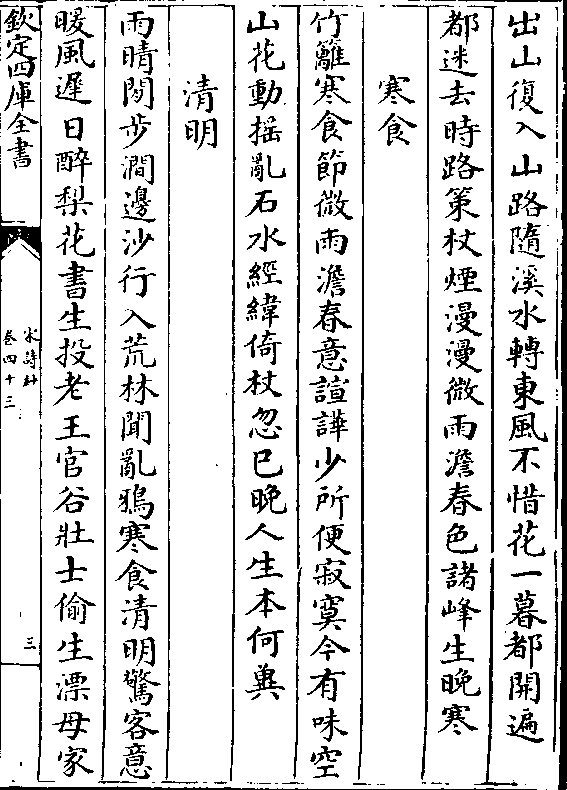 出山復入山路隨溪水轉東風不惜花一暮都開遍
都迷去時路策杖煙漫漫微雨澹春色諸峰生晚寒
寒食
竹籬寒食節微雨澹春意諠譁少所便寂寞今有味空
山花動揺亂石水經緯倚杖忽已晚人生本何冀
清明
雨晴閒步澗邊沙行入荒林聞亂鴉寒食清明驚客意
暖風遲日醉梨花書生投老王官谷壯士偷生漂母家
欽定四庫全書
宋詩鈔
卷四十三
三